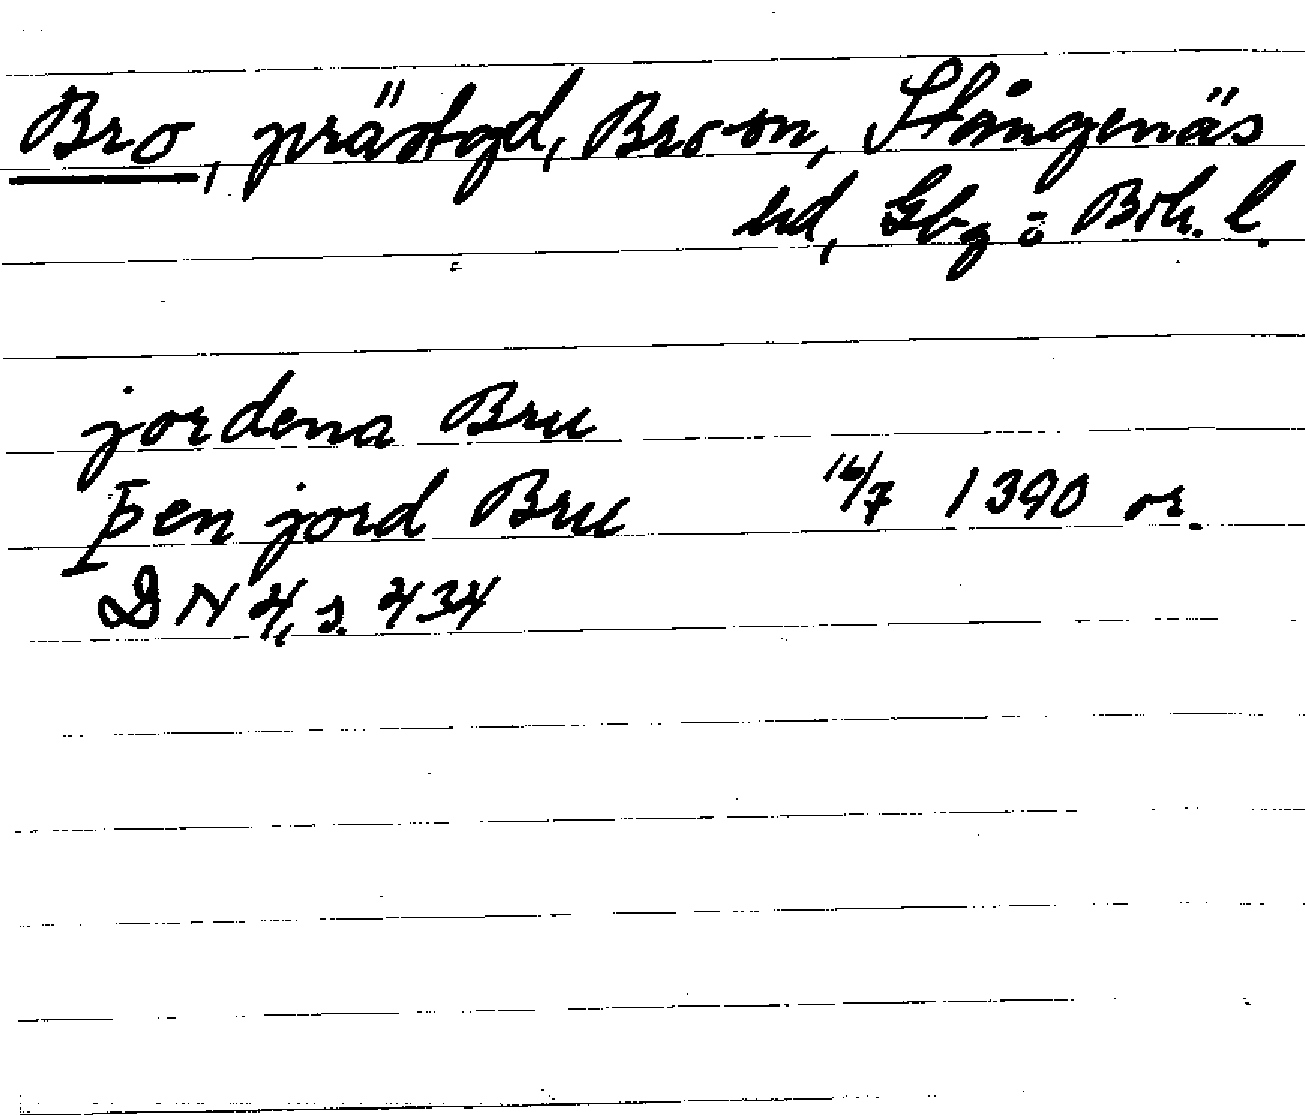 Bro, prästgd, Bro sn, Stångenäs
hd, Gbg o Boh. l.
jordena Bru
þen jord Bru 16/7 1390 or.
DN 4, s. 434